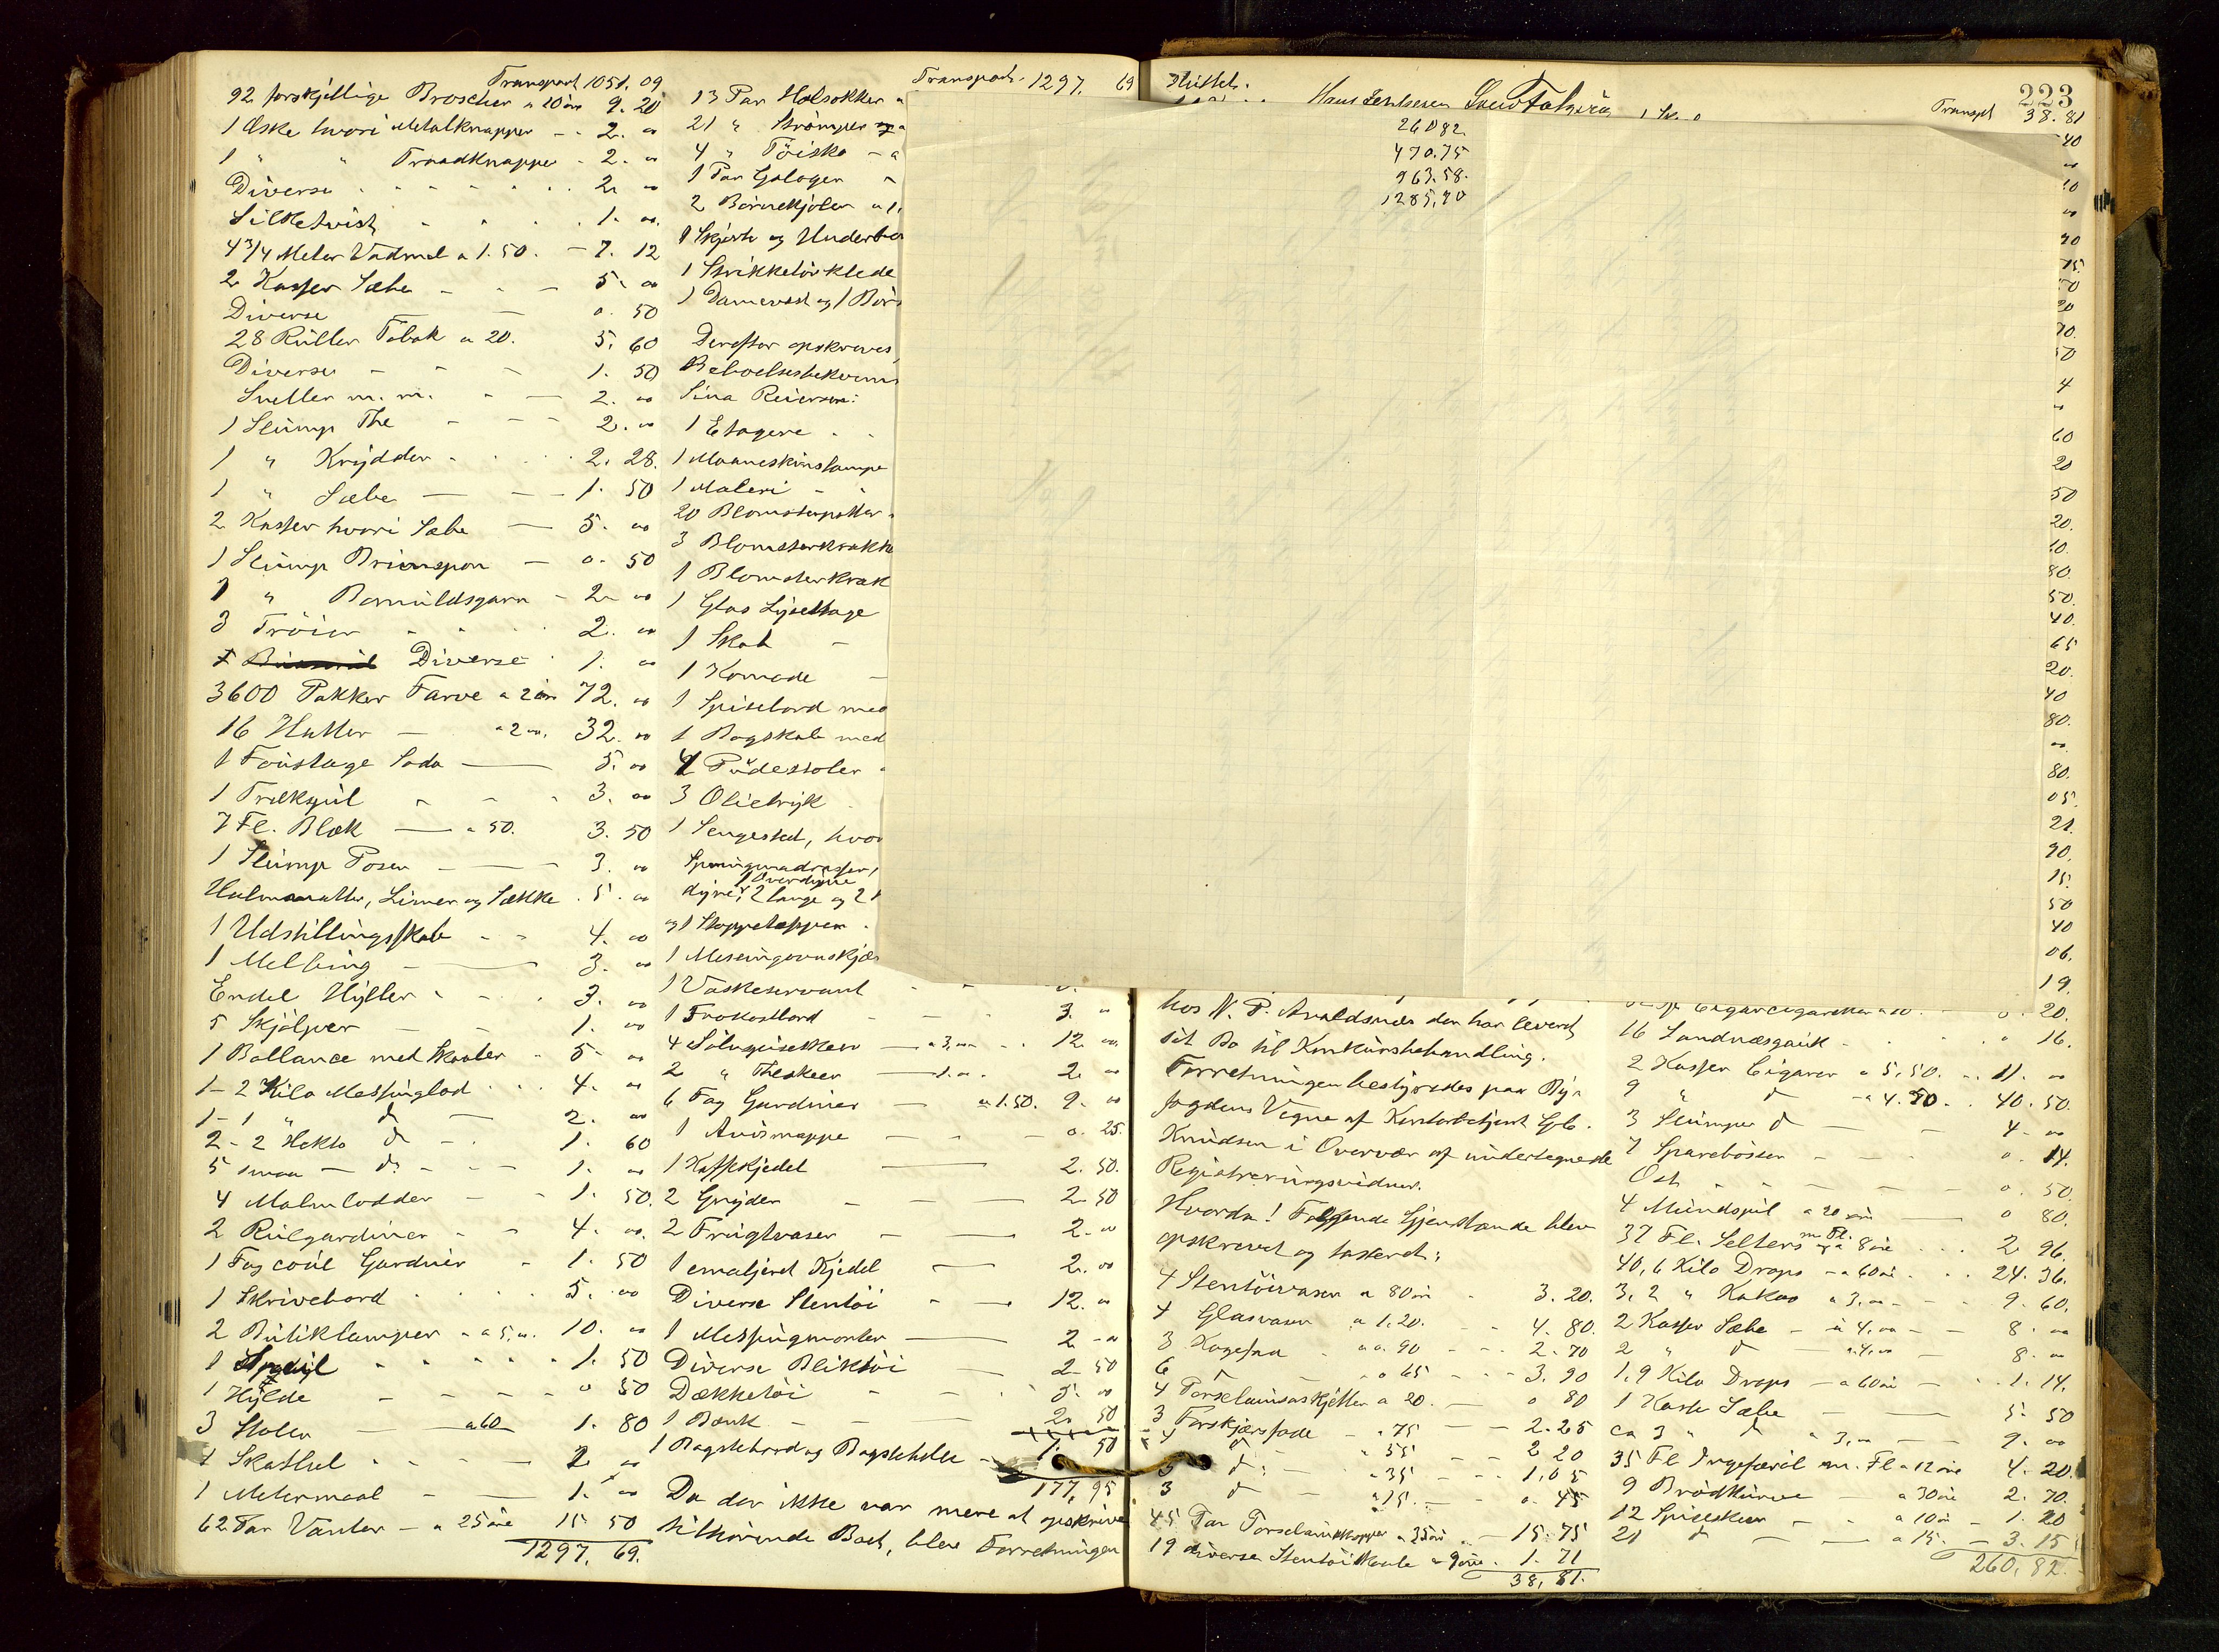 Transport 1051. 09
92 forskjellige Broscher a 10 öre 9. 20
1 Æske hvori Metalknapper - - 2. 00
1 " " Traadknapper - 2. 00
Diverse 2. 00
Silketvist 1. 00
4 3/4 Meter Vadmel a 1.50. - 7. 12
2 Kasser Sæbe 5. 00
Diverse 0. 50
28 Ruller Tobak a 20. 5. 60
Diverse 1. 50
Sneller m. m. 2. 00
1 Slump The 2. 00
1 " Krydder 2. 28.
1 " Sæbe 1. 50
2 Kasser hvori Sæbe 5. 00
1 Slump 0. 50
1 " Bomuldsgarn 2. 00
3 Tröier 2. 00
Diverse 1. 00
3600 Pakker Farve a 2 öre 72. 00
16 Hatter a 2.00. 32. 00
1 Foustage Soda 5. 00
1 Trækspil 3. 00
7 Fl. Blæk a 50. 3. 50
1 Slump Poser 3. 00
Halmmatter, Limer og Sække. 5. 00
1 Udstillingsskab 4. 00
1 Melbing 3. 00
Endel Hyller 3. 00
5 Skjölper 1. 00
1 Ballance med Skaaler 5. 00
1 - 2 Kilo Messinglod 4. 00
1 - 1 " do 2. 00
2 - 2 Hekto do 1. 60
5 smaa do 1. 00
4 Malmlodder 1. 50.
2 Rulgardiner 4. 00
1 Fag coul Gardiner 1. 50
1 Skrivebord 5. 00
2 Butiklamper a 5.00. 10. 00
1 Speil 1. 50
1 Hylde 0 50
3 Stoler a 60 1. 80
1 Skathul 2 00
1 Metermaal 1. 00
62 Par Vanter a 25 öre 15 50
1297. 69.
Transport. 1297. 69
13 Par Halsokker
21 " Strömper
4 " Töisko
1 Par Galoger
2 Barnekjoler a 1.
1 Skjört og Underbu
1 Strikketörklæde
1 Damevest og 1 Bar
Derefter opskreves
Beboelsesbekvem
Sina Reiersen:
1 Etagere
1 Maaneskinslampe
1 Maleri
20 Blomsterpotter
3 Blomsterkrakke
1 Blomsterkrak
1 Glas Lysestage
1 Skab
1 Komode
1 Spisebord med
1 Bogskab med
4 Pudestoler
3 Olietryk
1 Sengested, hvor
Springmadrasser,
1 Overdyne
dyne, 2 lange og 2
og 1 Stoppetæppe
1 Messingovnskjær
1 Vaskeservant
1 Frokostbord 3. "
4 Sölvspiseskeer a 3,00 12. 00.
2 " Theskeer 1.00. 2. 00
6 Fag Gardiner a 1.50. 9. 00
1 Avismappe 0. 25.
1 Kaffekjedel 2. 50.
2 Gryder 2. 50
2 Frugtvaser 2. 00
1 emaljeret Kjedel 2. 00
Diverse Stentöi 12. 00
1 Messingmorter 2 - 00
Diverse Bliktöi 2 50
Dækketöi 5. 00
1 Bænk 2. 50
1 Bagstebord og Bagstehelle 1. 50
177, 95
Da der ikke var mere at opskrive
tilhörende Boet, blev Forretningen
Sluttet.
26082.
470.75
963.58.
1285,90
hos N. P. Avaldsnæs der har leveret
sit Bo til Konkursbehandling.
Forretningen bestyredes paa By-
fogdens Vegne af Kontorbetjent
Knudsen i Overvær af undertegnede
Registreringsvidner.
Hvorda! Følgende Gjenstande blev
opskrevet og taxeret:
4 Stentöivaser a 80 öre 3. 20.
4 Glasvaser a 1.20. 4. 80.
3 Kagefad a 0. 90 2. 70
6 do a 65 3. 90
4 Porselainsaskjetter a 20. 0 80
3 Forskjærsfade a 75 2. 25
4 do a 55 2 20
3 do a 35 1,05
3 do a 15. 0. 45
45 Par Porselainskopper a 35 öre 15. 75
19 diverse Stentöiskaale a 9 öre. 1. 71
38, 81.
223
Transpt 38. 81
40
00
10
00
90
75.
50
20
70.
50
4
00
60
20
50
20.
10.
80.
50.
40.
65
20.
40
80.
00.
80.
05.
21.
90.
15.
50
40
06.
19.
20.
16 16.
2 Kasser Cigarer a 5,50. 11. 00
9 " do a 4.50. 40. 50.
3 Slumper do 4. 00
7 Sparebösser 0. 14.
Ost 0. 50.
4 Mundspil a 20 öre 0 80.
37 Fl. Selters m. Fl. a 8 öre 2 96.
40,6 Kilo Drops a 60 öre 24. 36.
3,2 " Kakao a 3,00 9. 60.
2 Kasser Sæbe a 4,00 8. 00
2 " do a 4,00 8. 00
1,9 Kilo Drops a 60 öre 1. 14.
1 Kasse Sæbe 5. 50
ca 3 " do a 3,00 9. 00
35 Fl Ingefæröl m. Fl a 12 öre 4. 20.
9 Brödkurve a 30 öre 2. 70.
12 Spiseskeer a 10 öre 1. 20
21 do a 15. 3. 15
260, 82.